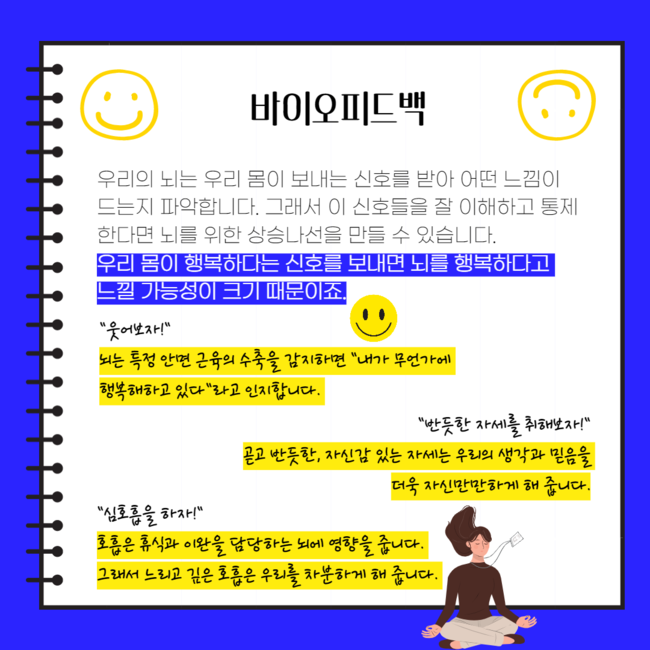 바이오피드백
우리의 뇌는 우리 몸이 보내는 신호를 받아 어떤 느낌이
드는지 파악합니다. 그래서 이 신호들을 잘 이해하고 통제
한다면 뇌를 위한 상승나선을 만들 수 있습니다.
우리 몸이 행복하다는 신호를 보내면 뇌를 행복하다고
느낄 가능성이 크기 때문이죠.
"웃어보자!"
뇌는 특정 안면 근육의 수축을 감지하면 "내가 무언가에
행복해하고 있다"라고 인지합니다.
"반듯한 자세를 취해보자!"
곧고 반듯한, 자신감 있는 자세는 우리의 생각과 믿음을
더욱 자신만만하게 해 줍니다.
"심호흡을 하자!"
호흡은 휴식과 이완을 담당하는 뇌에 영향을 줍니다.
그래서 느리고 깊은 호흡은 우리를 차분하게 해 줍니다.